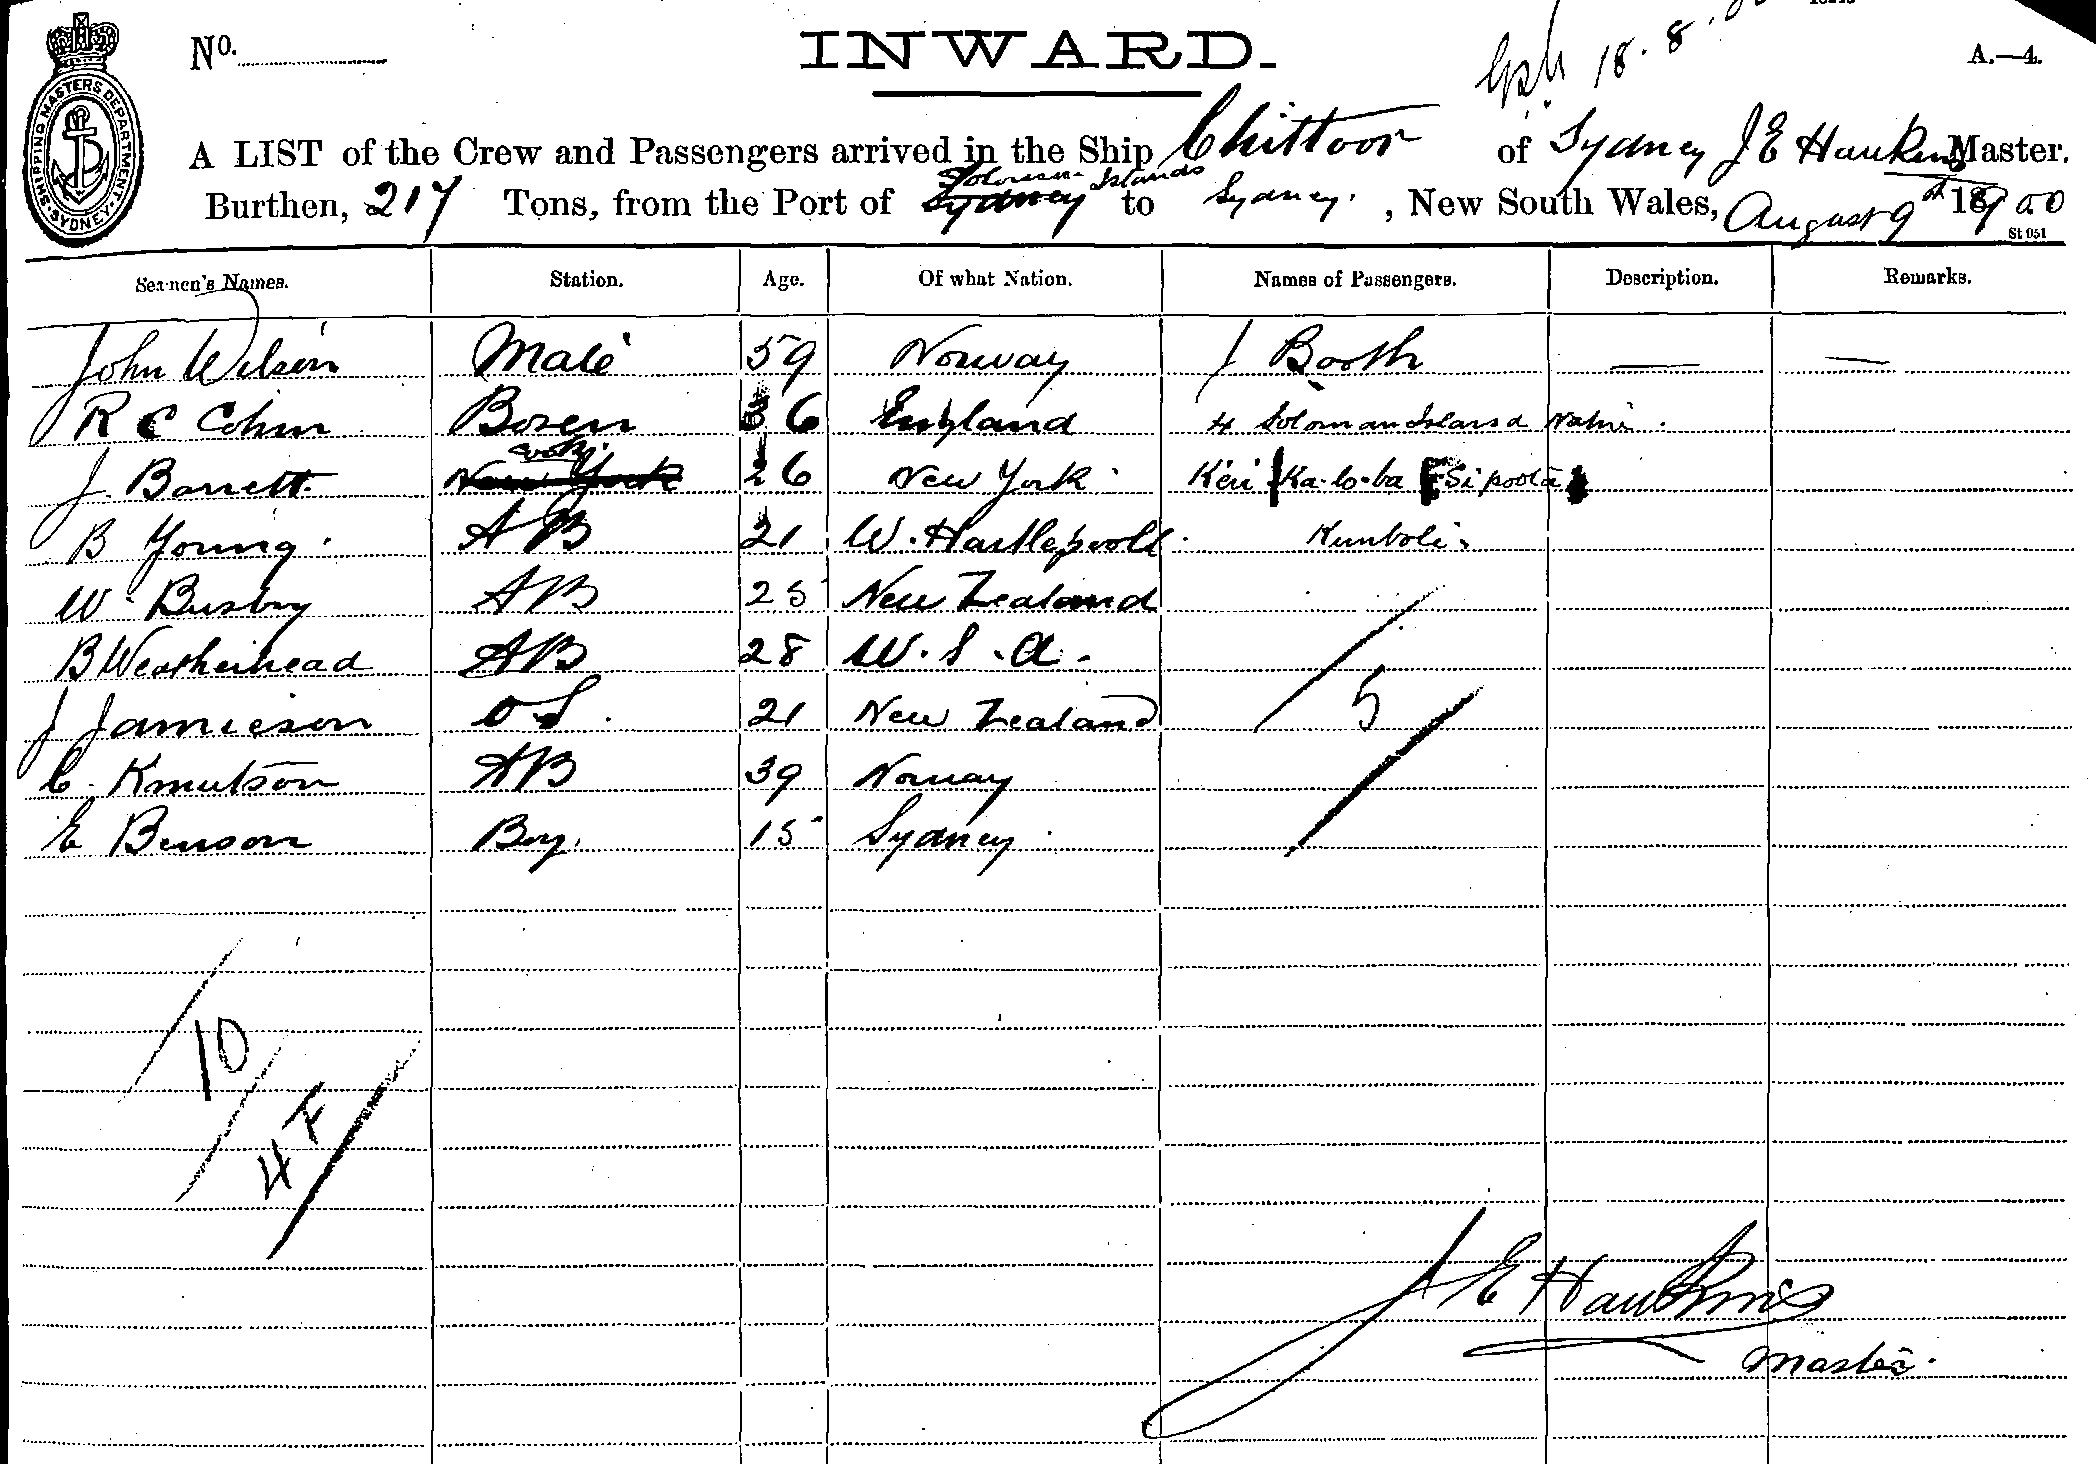 No.
INWARD.
18.8.
A.—4.
SHIPPING MASTERS DEPARTMENT SYDNEY
A LIST of the Crew and Passengers arrived in the Ship Chittoor of Sydney J E Hawkins Master.
Solomon Islands
Burthen, 217 Tons, from the Port of Sydney to Sydney. , New South Wales, August 9th 1900
St 051
Seamen's Names. Station. Age. Of what Nation. Names of Passengers. Description. Remarks.
John Wilson Mate 59 Norway 1 Booth — —
R C Cohin Bosen 36 England 4 Soloman Island Native.
cook.
J. Barrett. New York 26 New York. Keri Ka-lo-ba Sipoola
B Young. AB 21 W. Hartlepool. Kumboli.
W. Busby AB 25 New Zealand
B Weatherhead AB 28 U.S.A.
J Jamieson O S. 21 New Zealand 5
C. Knutson AB 39 Norway
E Benson Boy. 15 Sydney.
10
4 F
J E Hawkins
Master.